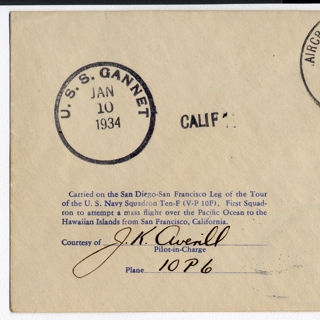 U. S. S. GANNET
JAN
10
1934
CALIF
AIRCR
Carried on the San Diego-San Francisco Leg of the Tour
of the U. S. Navy Squadron Ten-F (V-P 10F). First Squad-
ron to attempt a mass flight over the Pacific Ocean to the
Hawaiian Islands from San Francisco, California.
Courtesy of J. K. Averill
Pilot-in-Charge
Plane 10P6